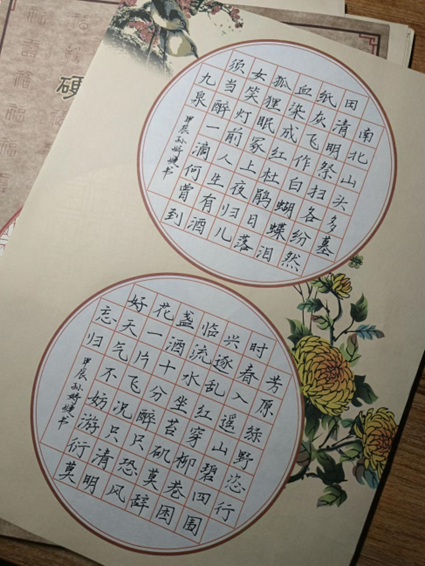 南北山头多墓
田清明祭扫各纷然
纸灰飞作白蝴蝶泪
血染成红杜鹃日落
狐狸眠冢上夜归儿
女笑灯前人生有酒
须当醉一滴何曾到
九泉
甲辰孙书
芳原绿野恣行
时春入遥山碧四围
兴逐乱红穿柳巷困
临流水坐苔矶莫辞
盏酒十分醉只恐风
花一片飞况只清明
好天气不妨游衍莫
忘归
甲辰孙书
硬